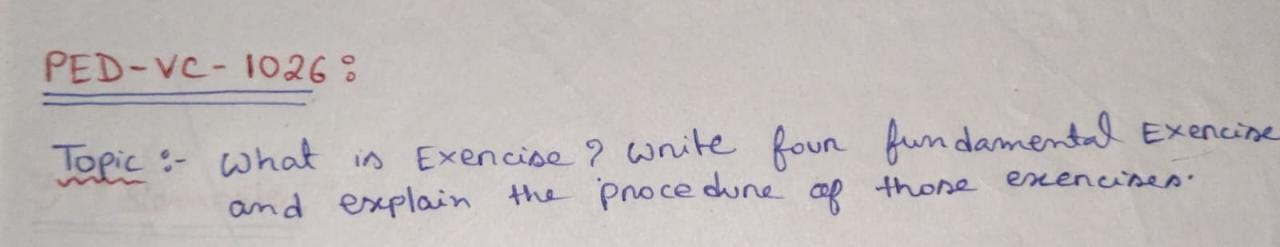 PED-VC-1026:
Topic :- What is Exercise? Write four fundamental Exercise
and explain the procedure of those exercises.